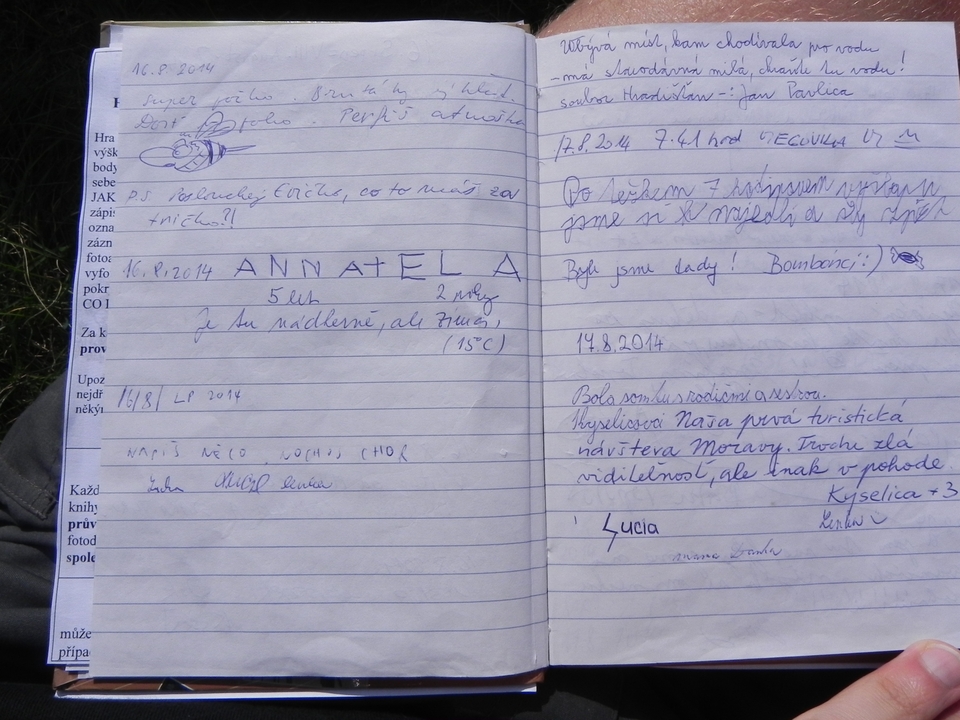 16.8.2014
super
Dost foto. Perfis atmoška
P.S. Poslouchej Evičko, co to máš za
tričko?!
16.8.2014 ANNA + ELA
5 let 2 roky
je tu nádherně, ale zima,
(15°C)
16/8/ LP 2014
NAPIŠ NĚCO
Hra
výšk
body
sebe
JAK
zápis
ozna
zázn
fotoa
vyfo
pokr
CO I
Za k
prov
Upoz
nejdř
někýr
Každ
knihy
prův
fotod
spole
může
případ
Ubývá míst, kam chodívala pro vodu
- má starodávná milá, chraňte tu vodu!
soubor Hradišťan -: Jan Pavlica
17.8.2014 7.41 hod
Po těžkém 7 hodinovém výstupu
jsme si najedli a zpět
Byli jsme tady! Bombarďáci :)
17.8.2014
Bola som tu s rodičmi a sestrou.
Kyselicová Naša prvá turistická
návšteva Moravy. Trochu zlá
viditeľnosť, ale inak v pohode
Kyselica + 3
Lucia Lenka
mama Danka